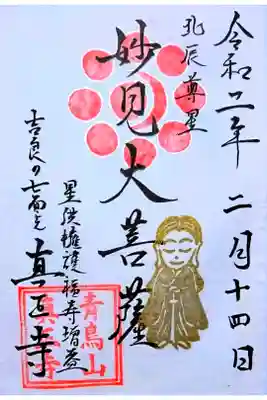 令和二年 二月十四日
北辰尊星
妙見大菩薩
星供擁護 福寿増益
吉良の七面さん
真正寺
青鳥山
真正寺